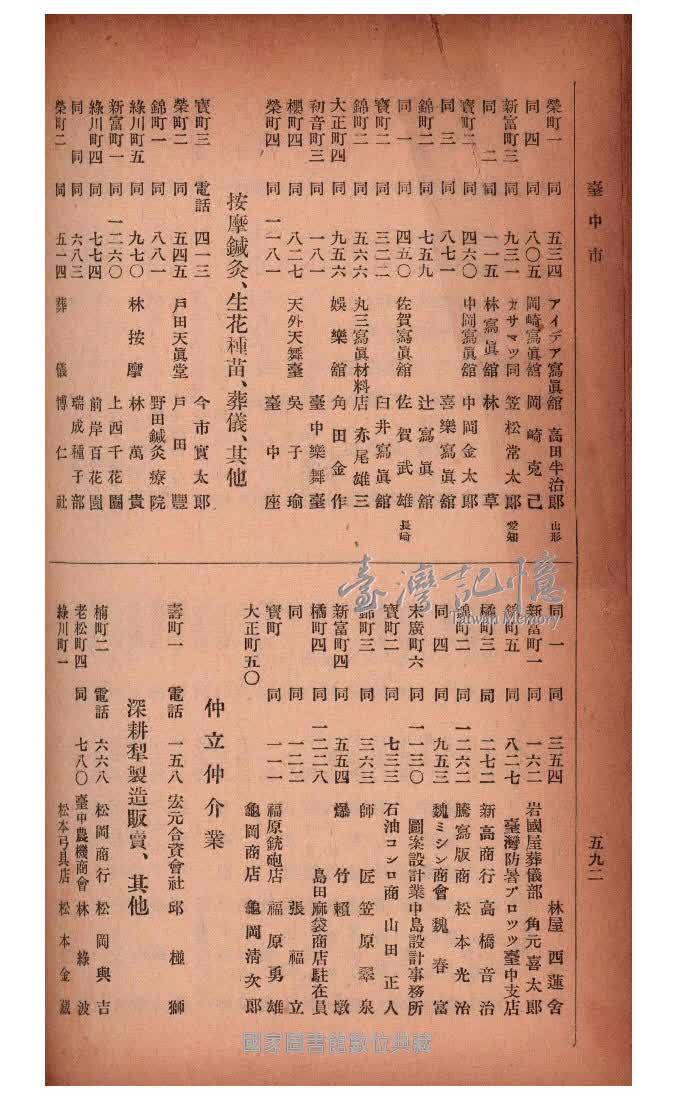 臺中市
五九二
榮町一 同 五三四 アイデア寫眞館 高田半治郎 山形
同 四 同 八〇五 岡崎寫眞舘 岡崎克己
新富町三 同 九三一 カサマツ同 笠松常太郎 愛知
同 二 同 一一五 林寫眞舘 林 草
寶町二 同 四六〇 中岡寫眞舘 中岡金太郎
同 三 同 八七一 喜樂寫眞舘
錦町二 同 七五九 辻寫眞舘
同 一 同 四五〇 佐賀寫眞舘 佐賀武雄 長崎
寶町二 同 三二二 臼井寫眞舘
錦町二 同 六六六 丸三寫眞材料店 赤尾雄三
大正町四 同 九五六 娛樂舘 角田金作
初音町三 同 一八一 臺中樂舞臺
櫻町四 同 八二七 天外天舞臺 吳子瑜
榮町四 同 一一八一 臺中座
按摩鍼灸、生花種苗、葬儀、其他
寶町三 電話 四一三 今市實太郎
榮町二 同 五四五 戶田天眞堂 戶田豐
錦町一 同 八八一 野田鍼灸療院
綠川町五 同 九七〇 林按摩 林萬貴
新富町一 同 一二六〇 上西千花園
綠川町四 同 七七四 前岸百花園
同 同 同 六八三 瑞成種子部
榮町二 同 五一四 葬儀 博仁社
同 一 同 三五四 林屋西蓮舍
新富町一 同 一六二 岩國屋葬儀部 角元喜太郎
錦町五 同 八二七 臺灣防暑ブロツツ臺中支店
橘町三 同 二七二 新高商行 高橋音治
錦町二 同 一二六二 謄寫版商 松本光治
同 四 同 九五三 魏ミシン商會 魏春富
末廣町六 同 一一三〇 圖案設計業中島設計事務所
寶町二 同 七三三 石油コンロ商 山田正人
錦町三 同 三六三 師匠 笠原翠泉
新富町四 同 五五四 爆竹 賴墩
橘町四 同 一二二八 島田麻袋商店駐在員
同 同 一二二 張福立
寶町 同 一一一 福原銃砲店 福原勇雄
大正町五〇 龜岡商店 龜岡淸次郎
仲立仲介業
壽町一 電話 一五八 宏元合資會社 邱極獅
深耕犁製造販賣、其他
楠町二 電話 六六八 松岡商行 松岡與吉
老松町四 同 七八〇 臺中農機商會 林綠波
綠川町一 松本弓具店 松本金藏
臺灣記憶
Taiwan Memory
國家圖書館數位典藏